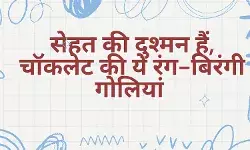 सेहत की दुश्मन हैं,
चॉकलेट की ये रंग-बिरंगी
गोलियां